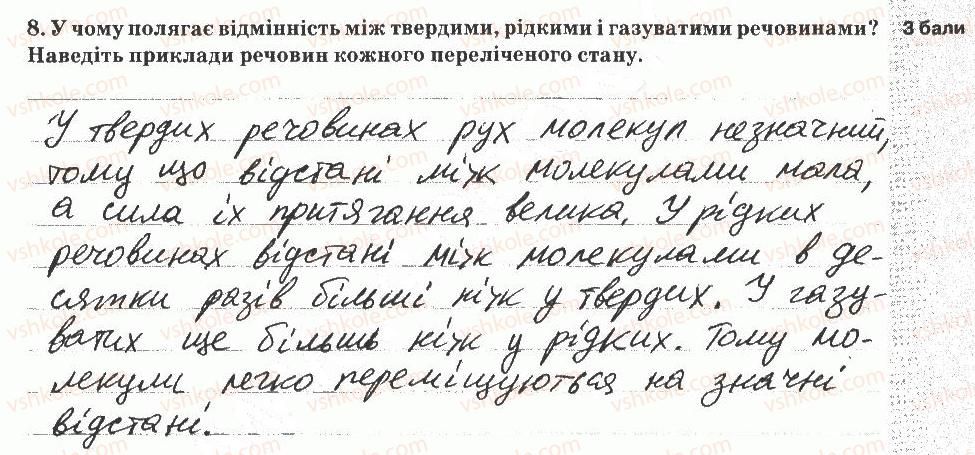 8. У чому полягає відмінність між твердими, рідкими і газуватими речовинами? 3 бали
Наведіть приклади речовин кожного переліченого стану.
У твердих речовинах рух молекул незначний,
тому що відстані між молекулами мала,
а сила їх притягання велика. У рідких
речовинах відстані між молекулами в де-
сятки разів більші ніж у твердих. У газу-
ватих ще більшь ніж у рідких. Тому мо-
лекули легко переміщуються на значні
відстані.